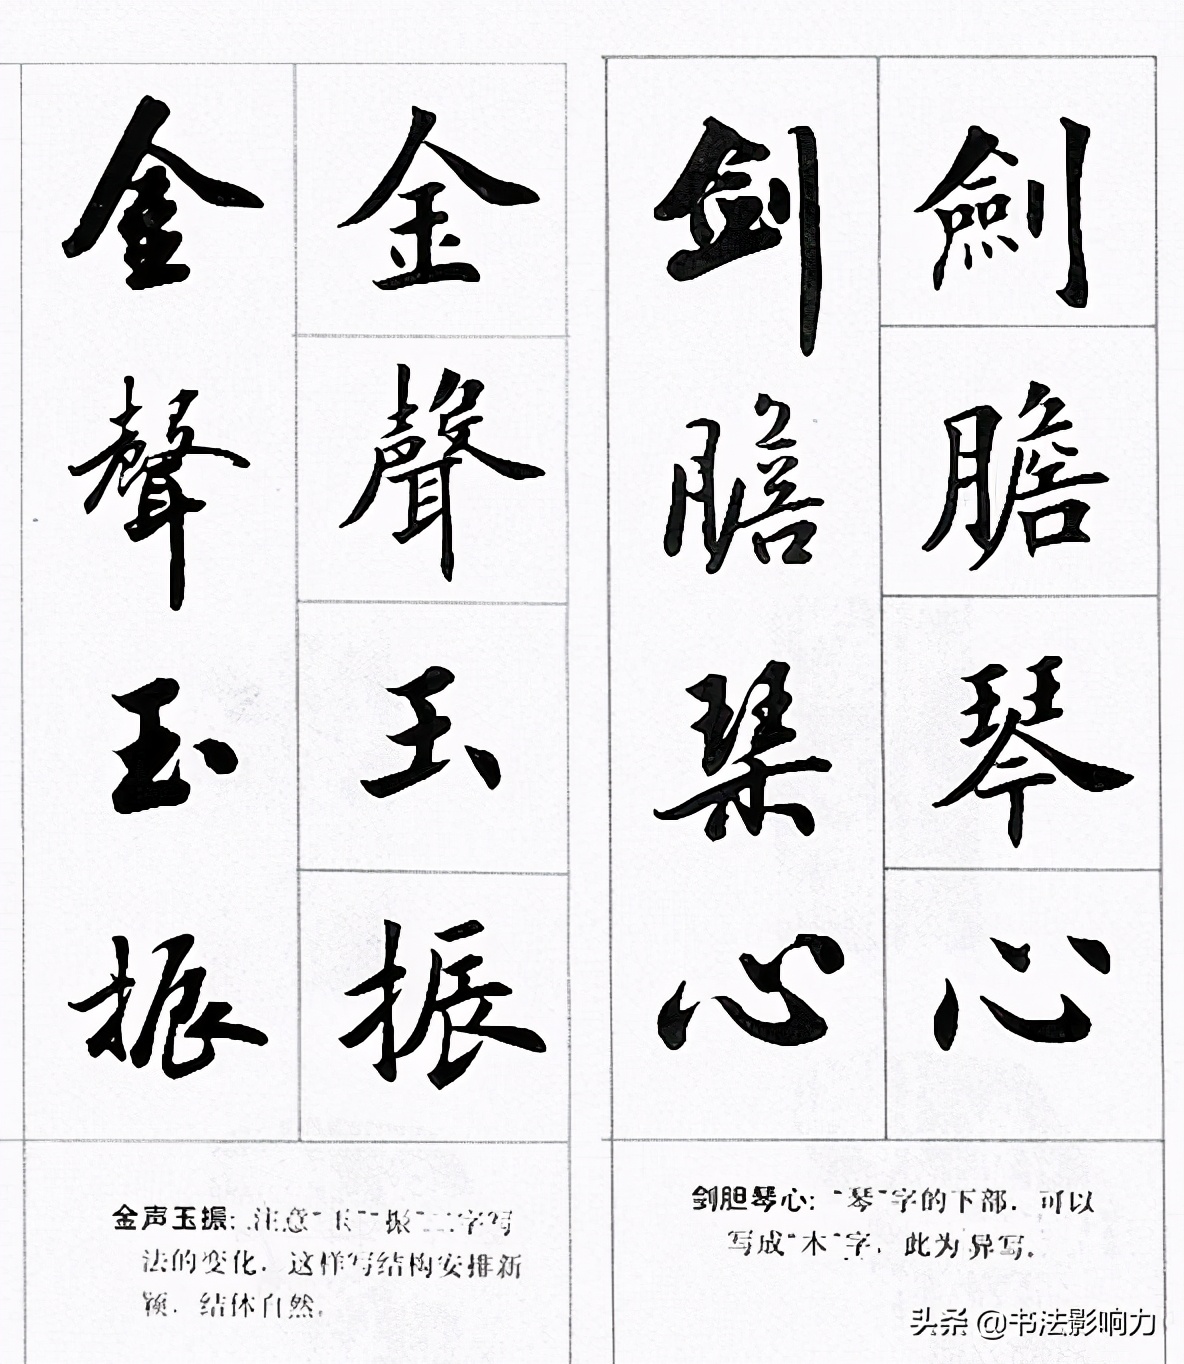 劍膽琴心
劍膽琹心
剑胆琴心:“琴”字的下部,可以
写成“木”字,此为异写。
金聲玉振
金聲玉振
金声玉振:注意“玉”“振”二字写
法的变化,这样写结构安排新
颖,结体自然。
头条 @书法影响力